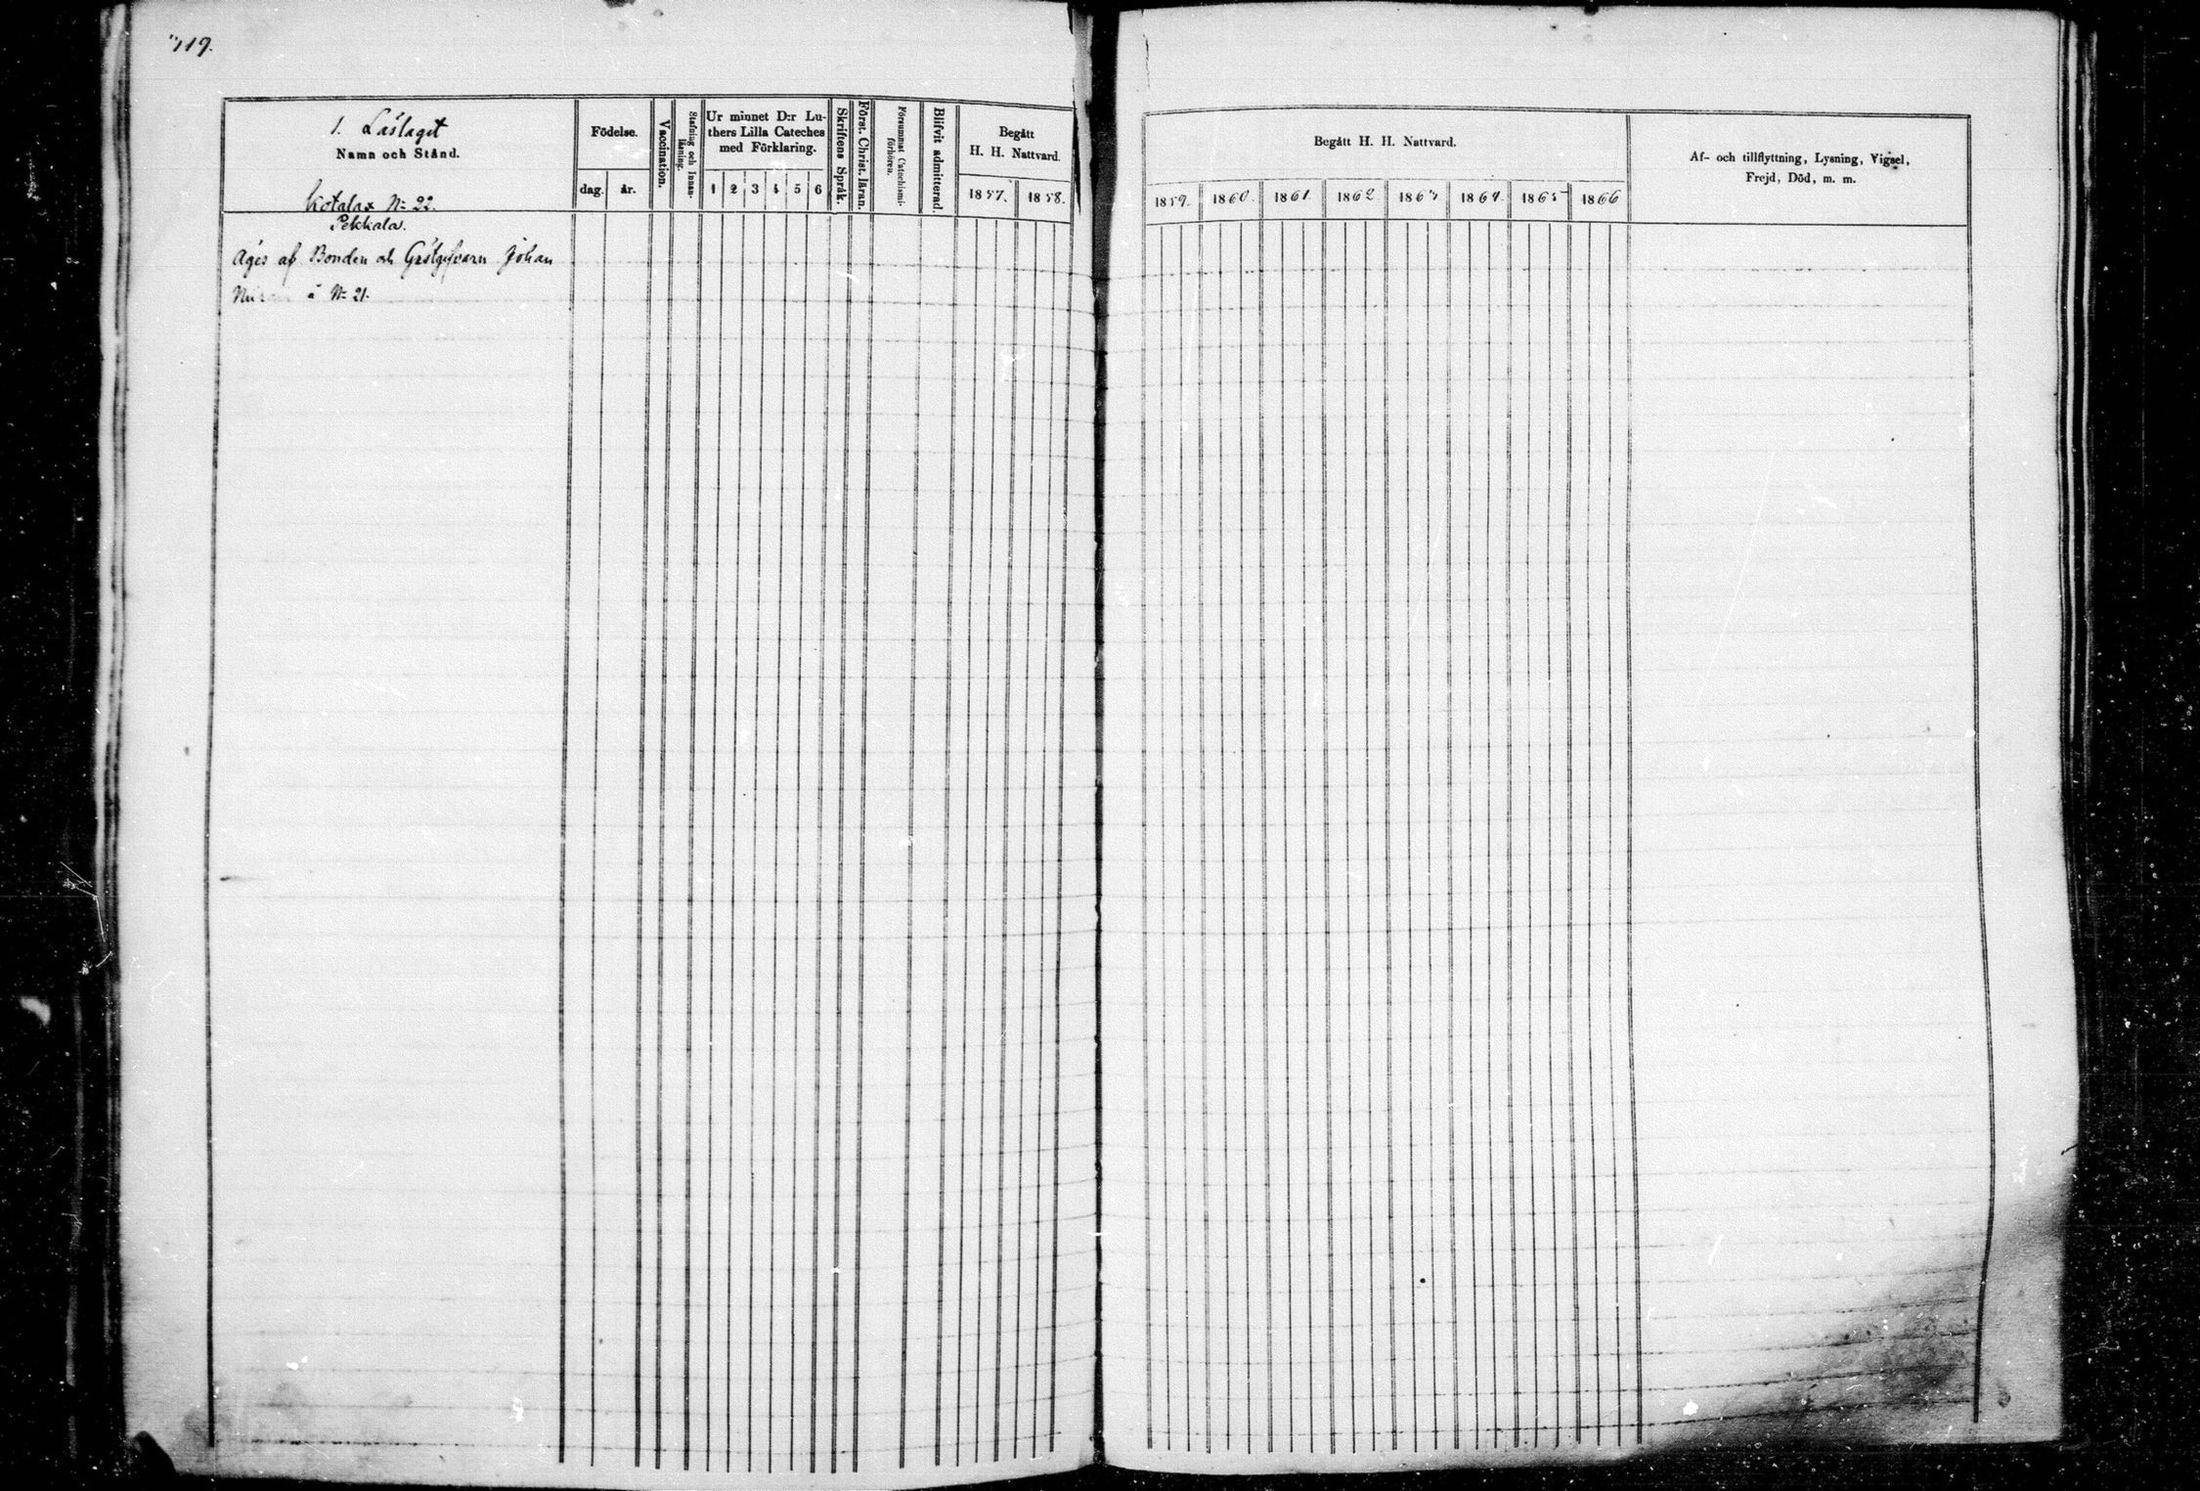 119.
1. Läslaget
Namn och Stånd.
Kotalax N: 22.
Pekkala.
Födelse.
dag. år.
Vaccination.
Stafning och Innan-
läsning.
Ur minnet D:r Lu-
thers Lilla Cateches
med Förklaring.
1 2 3 4 5 6
Skriftens Språk.
Först. Christ. läran.
Försummat Catechismi-
förhören.
Blifvit admitterad.
Begått
H. H. Nattvard.
1857. 1858.
Äges af Bonden och Gästgifvaren Johan
å N: 21.
Begått H. H. Nattvard.
1859. 1860. 1861 1862 1863 1864. 1865 1866
Af- och tillflyttning, Lysning, Vigsel,
Frejd, Död, m. m.